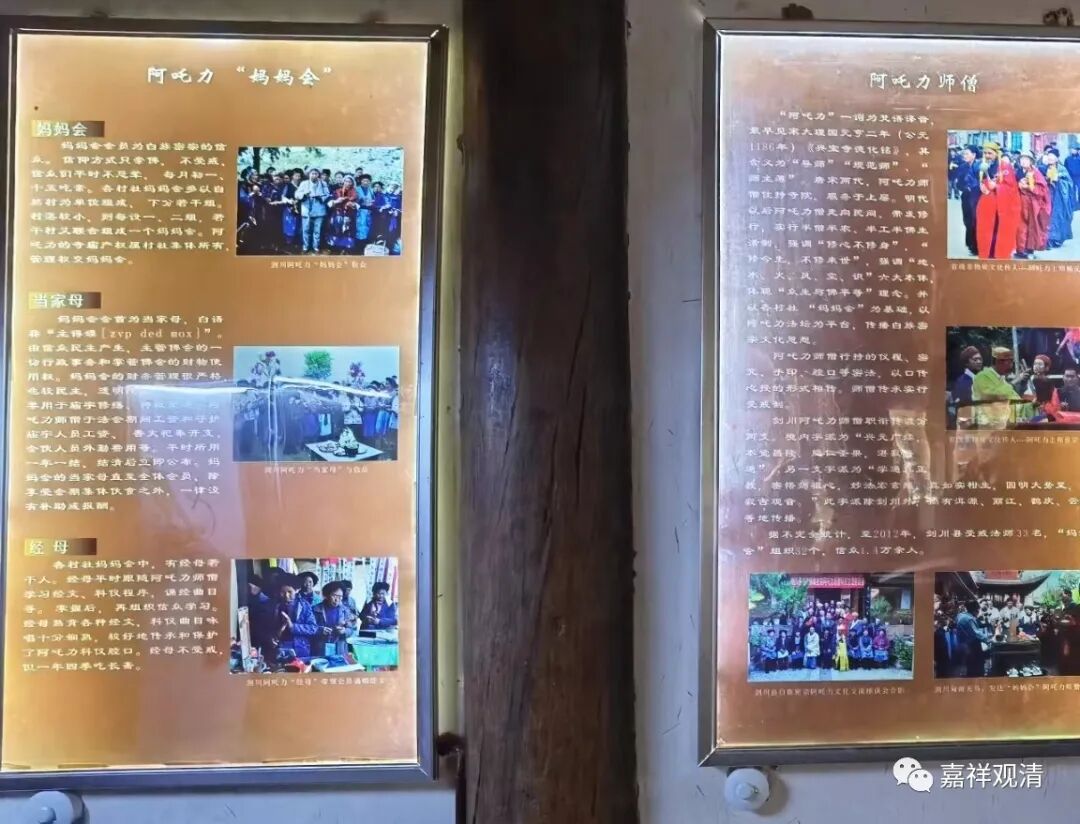 阿吒力 “妈妈会”
妈妈会
妈妈会会员为白族密宗的信
众。信仰方式只崇佛, 不受戒,
信众们平时不忌荤, 每月初一、
十五吃素。各村社妈妈会多以自
然村为单位组成, 下分若干组。
村落较小, 则每设一、二组, 若
干村又联合组成一个妈妈会。阿
吒力的寺庙产权属村社集体所有,
管理权交妈妈会。
剑川阿吒力“妈妈会”数众
当家母
妈妈会会首为当家母, 白语
称“主得嫫[zvp ded mox]”。
由信众民主产生, 主管佛会的一
切行政事务和掌管佛会的财物使
用权。妈妈会的财务管理很严格
也较民主, 透明
要用于庙宇修缮
吒力师僧于法会期间工资和守护
庙宇人员工资、 香火祀奉开支,
会伙人员外勤费用等。平时所用
一年一结, 结清后立即公布。妈
妈会的当家母直至全体会员, 除
享受会期集体伙食之外, 一律没
有补助或报酬。
剑川阿吒力“当家母”与供品
经母
各村社妈妈会中, 有经母若
干人。经母平时跟随阿吒力师僧
学习经文、科仪程序、诵经曲目
等。掌握后, 再组织信众学习。
经母熟背各种经文, 科仪曲目咏
唱十分娴熟, 较好地传承和保护
了阿吒力科仪腔口。经母不受戒,
但一年四季吃长斋。
剑川阿吒力“经母”带领会员诵唱经文
阿吒力师僧
“阿吒力”一词为梵语译音,
最早见宋大理国元亨二年(公元
1186年)《兴宝寺德化铭》, 其
含义为“导师”“规范师”、“
师主薄”。唐宋两代, 阿吒力师
僧住持寺院, 服务于上层。明代
以后阿吒力僧走向民间, 带发修
行, 实行半僧半农、半工半佛生
活制, 强调“修心不修身”、“
修今生, 不修来世”, 强调“地
、水、火、风、空、识”六大本体,
体现“众生与佛平等”理念。并
以各村社“妈妈会”为基础, 以
阿吒力法坛为平台, 传播白族密
宗文化思想。
阿吒力师僧行持的仪程、密
咒、手印、腔口等密法, 以口传
心授的形式相传。师僧传承实行
受戒制。
剑川阿吒力师僧职衔传派分
两支。境内字派为“兴元广
通”, 另一支字派为“学通
寂古观音。”此字派除剑川外, 还有洱源、丽江、鹤庆、云
等地传播。
据不完全统计, 至2012年, 剑川县受戒法师33名, “妈
会”组织82个, 信众1.4万余人。
嘉祥观清